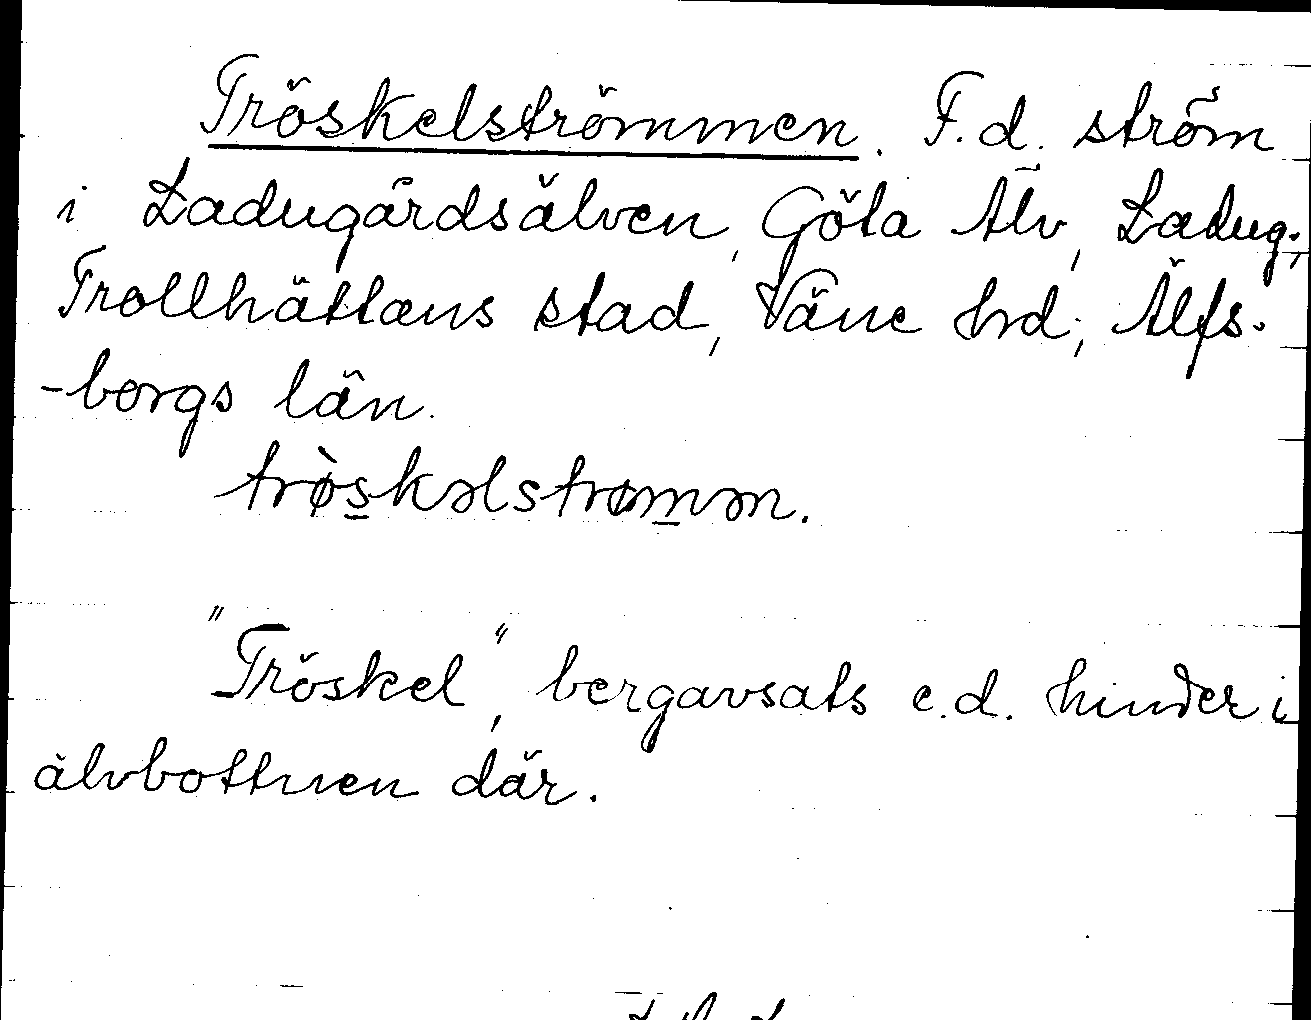 Tröskelströmmen. F.d. ström
i Ladugårdsälven, Göta Älv, Ladug.,
Trollhättans stad, Väne hrd, Älfs-
-borgs län.
trø̀s̲kəlstrøm̲ən.
"Tröskel", bergavsats e.d. hinder i
älvbottnen där.